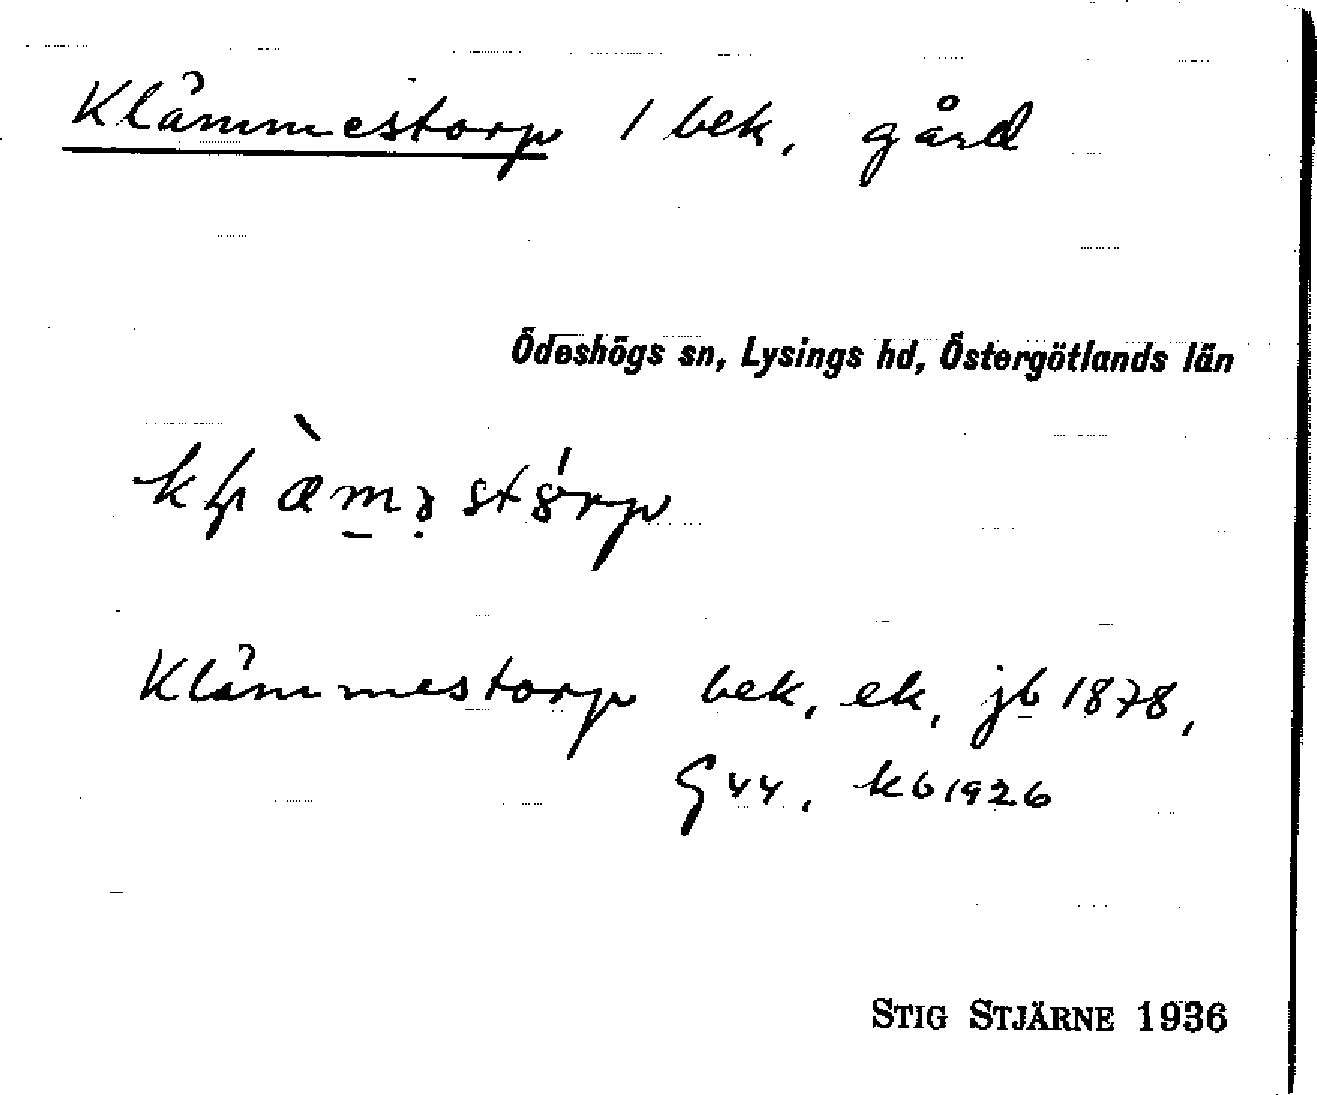 Klämmestorp 1 bek, gård
Ödeshögs sn, Lysings hd, Östergötlands län
Klämmestorp bek, ek, jb 1878,
G44, kb 1926
STIG STJÄRNE 1936